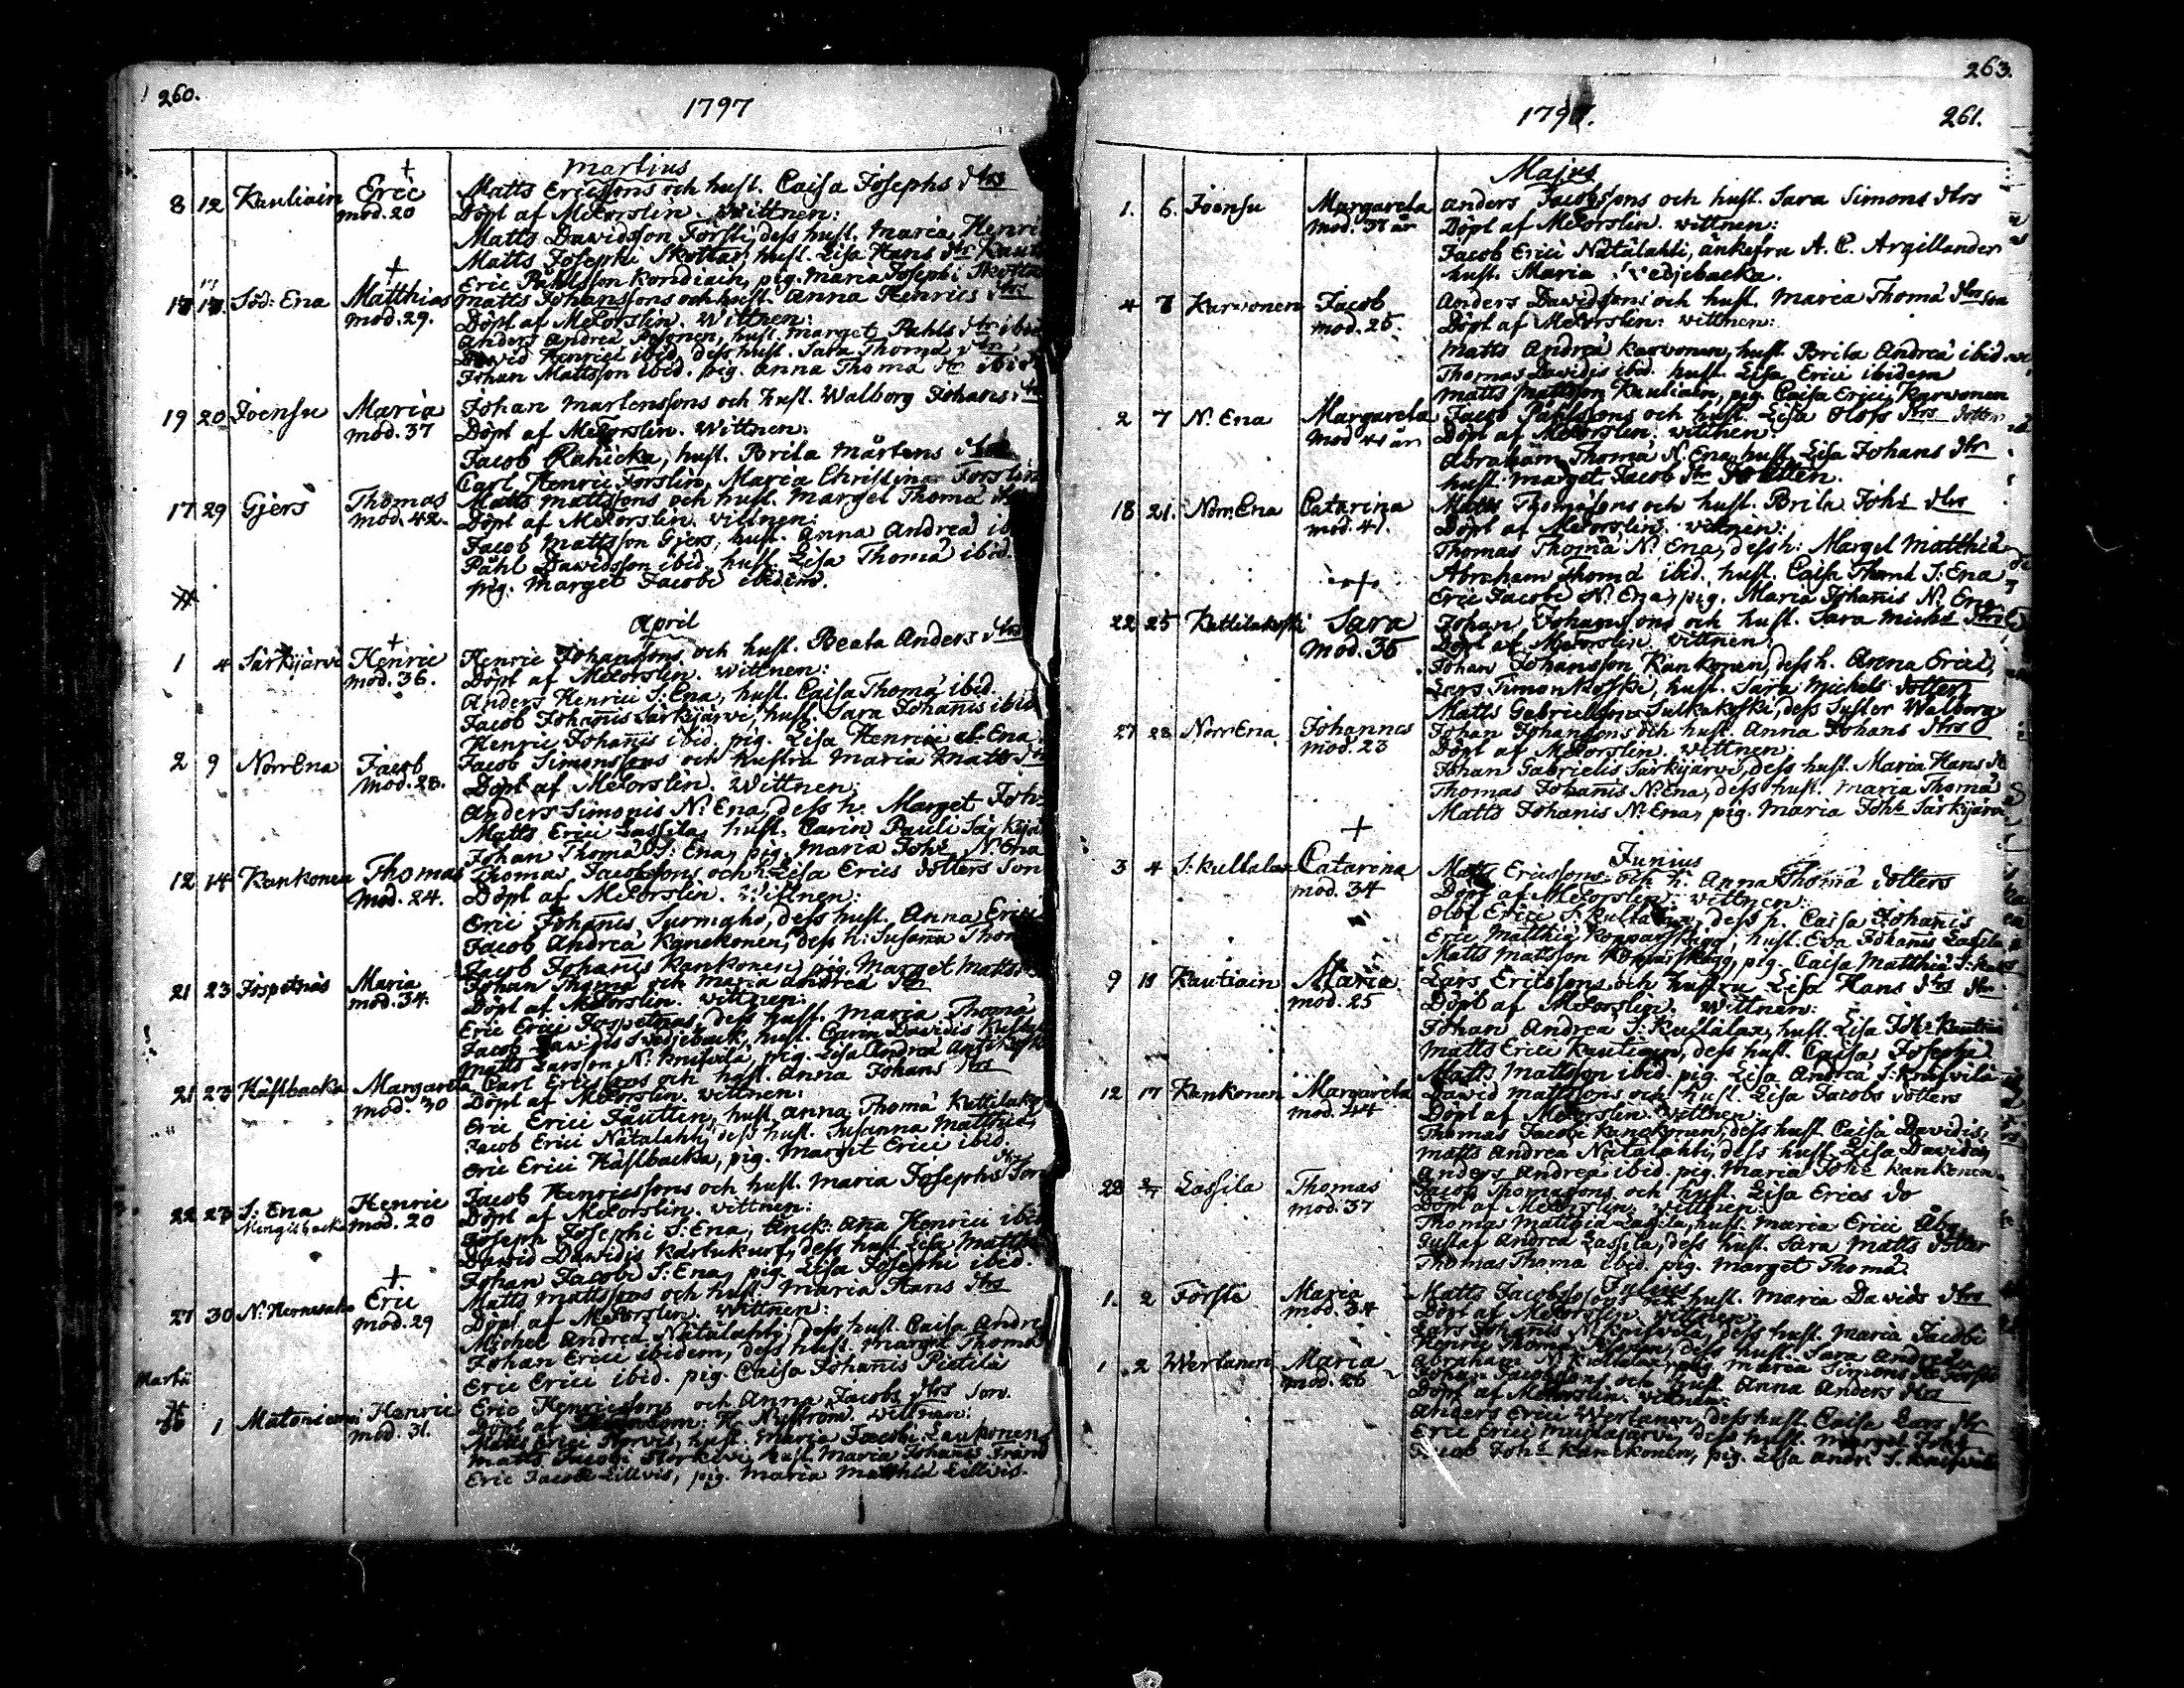 260.
1797
Martius
8 12 Kautiain Eric Matts Ericssons och hust. Caisa Josephs dtrs
mod. 20 Döpt af M. Forslin. Wittnen:
Matts Davidsson Forsti, dess hust. Maria Henri
Matts Josephi Skottar, hust. Lisa Hans dtr Kaut
Eric Påhlsson Kordiain, pig. Maria Josephi Skotta
Söd: Ena Matthias Matts Johanssons och hust. Anna Henrics dtrs
mod. 29. Döpt af M. Forslin. Wittnen:
Anders Andreä Pesonen, hust. Marget Påhls dtr ibid
David Henrici ibid, dess hust. Sara Thomä dtr
Johan Mattsson ibid. pig. Anna Thomä dtr ibid
19 20 Joensu Maria Johan Martenssons och hust. Walborg Johans
mod. 37 Döpt af M. Forslin. Wittnen:
Jacob Rahicka, hust. Brita Mårtens
Carl Henric Forslin, Maria Christina Forslin
17 29 Gjers Thomas Matts Mattssons och hust. Marget Thomä
mod. 42. Döpt af M. Forslin. Wittnen:
Jacob Mattsson Gjers, hust. Anna Andreä
Påhl Davidsson ibid. hust. Lisa Thomä ibid.
pig. Marget Jacobi ibidem.
April
1 4 Särkijärvi Henric Henric Johanssons och hust. Beata Anders dtrs
mod. 36. Döpt af M. Forslin. Wittnen:
Anders Henrici S: Ena, hust. Caisa Thomä ibid.
Jacob Johannis Särkijärvi, hust. Sara Johannis ibid
Henric Johannis ibid. pig. Lisa Henrici Ena
2 9 NorrEna Jacob Jacob Simonssons och hustru Maria Matts
mod. 28. Döpt af M. Forslin. Wittnen:
Anders Simonis N: Ena, dess h. Marget Joh:
Matts Erici Lassila, hust. Carin Pauli Särkijä
Johan Thomä S: Ena, pig. Maria Joh: N: Ena
12 14 Kankonen Thomas Thomas Jacobssons och h. Lisa Erics dotters Son
mod. 24. Döpt af M. Forslin. Wittnen:
Eric Johannis Surmaho, dess hust. Anna Erici
Jacob Andreä Kanckonen, dess h: Susanna Thom
Jacob Johannis Kankonen, pig. Marget Matts
21 23 Jospetnäs Maria Johan Thomä och Maria Andreä dtr
mod. 34. Döpt af M. Forslin. Wittnen:
Eric Erici Jospetnäs, dess hust. Maria Thomä
Jacob Davidis Svedjeback, hust. Carin Davidis
Matts Larsson N: Knifvilä, pig. Lisa Andreä
21 23 Häslbacka Margareta Carl Ericssons och hust. Anna Johans dtrs
mod. 30 Döpt af M. Forslin. Wittnen:
Eric Erici Fäutten, hust. Anna Thomä Kettilako
Jacob Erici Nätälahti, dess hust. Susanna Matthiä
Eric Erici Häslbacka, pig. Margit Erici ibid.
22 27 S: Ena Henric Jacob Henricssons och hust. Maria Josephs
mod. 20 Döpt af M. Forslin. Wittnen:
Joseph Josephi S: Ena, Enck: Anna Henrici ibid
David Davidis Karhukorf, dess hust. Lisa Matth
Johan Jacobi S: Ena, pig. Lisa Josephi ibid.
27 30 Eric Matts Mattssons och hust. Maria Hans dtrs
mod. 29 Döpt af M. Forslin. Wittnen:
Michel Andreä Nätälahti, dess hust. Caisa Andre
Johan Erici ibidem, dess hust. Marget Thomä
Eric Erici ibid. pig. Caisa Johannis Pietilä
Martii
1 Henric Eric Henricssons och Anna Jacobs dtrs son.
mod. 31. Döpt af H. Nyström. Wittnen:
Matts Erici hust. Maria Jacobi Laukonen
Matts Jacobi hust. Maria Johannis
Eric Jacobi Lillvis, pig. Maria Matthiä Lillvis.
263.
1797.
261.
Majus
1. 6. Joensu Margareta Anders Jacobssons och hust. Sara Simons dtrs
mod. 37 år Döpt af M. Forslin. Wittnen:
Jacob Erici Nätälahti, änkefru A. C. Argillander
hust. Maria Svedjebacka.
4 7 Karvonen Jacob Anders Davidssons och hust. Maria Thomä dtrs son
mod. 25. Döpt af M. Forslin: Wittnen:
Matts Andreä Karvonen, hust. Brita Andreä ibid.
Thomas Davidis ibid. hust. Lisa Erici ibidem
Matts Mattsson Kautiain, pig. Caisa Erici Karvonen
2 7 N: Ena Margareta Jacob Påhlssons och hust. Lisa Olofs dtrs dotter
mod 41 år Döpt af M. Forslin. Wittnen:
Abraham Thomä N: Ena, hust. Lisa Johans dtr
hust. Marget Jacobs dtr
18 21. Norr Ena Catarina Matts Thomäsons och hust. Brita Joh: dtrs
mod. 41. Döpt af M. Forslin. Wittnen:
Thomas Thomä N: Ena, dess h: Marget Matthiä
Abraham Thomä ibid. hust. Caisa Thomä S: Ena
Eric Jacobi N: Ena, pig. Maria Johannis N: Ena
22 25 Kattilakoski Sara Johan Johanssons och hust. Sara Michs dtrs
mod. 36 Döpt af M. Forslin. Wittnen:
Johan Johansson Kankonen, dess h. Anna Erici
Lars Timonkoski, hust. Sara Michels dotter
Matts Gabrielsson Sulkakoski, dess Syster Walborg
27 28 NorrEna Johannes Johan Johanssons och hust. Anna Johans dtrs
mod. 23 Döpt af M. Forslin. Wittnen:
Johan Gabrielis Särkijärvi, dess hust. Maria Hans
Thomas Johannis N: Ena, dess hust. Maria Thomä
Matts Johannis N: Ena, pig. Maria Joh: Särkijärvi
Junius
3 4 S: Kultalax Catarina Matts Ericssons och h. Anna Thomä dotters
mod. 34 Döpt af M. Forslin: Wittnen:
Olof Erici S: Kultalax, dess h. Caisa Johannis
Eric Matthiä Kopparskägg, hust. Eva Johannis Lassila
Matts Mattsson Kopparskägg, pig. Caisa Matthiä
9 11 Kautiain Maria Lars Ericssons och hustru Lisa Hans dtrs
mod. 25 Döpt af M. Forslin. Wittnen:
Johan Andreä S: Kultalax, hust. Lisa Joh: Kautiain
Matts Erici Kautiain, dess hust. Caisa Josephi
Matts Mattsson ibid. pig. Lisa Andreä S: Knifvilä
12 17 Kankonen Margareta David Mattssons och hust. Lisa Jacobs dotters
mod. 44 Döpt af M. Forslin. Wittnen:
Thomas Jacobi Kanckonen, dess hust. Caisa Davidis,
Matts Andreä Nätälahti, dess hust. Lisa Davidis
Anders Andreä ibid. pig. Maria Joh: Kankonen
28 Lassila Thomas Jacob Thomassons och hust. Lisa Erics do
mod. 37 Döpt af M. Forslin. Wittnen:
Thomas Matthiä Lassila, hust. Maria Erici Åby
Gustaf Andreä Lassila, dess hust. Sara Matts dotter
Thomas Thomä ibid. pig. Marget Thomä
Julius
1. 2 Förste Maria Matts Jacobssons och hust. Maria Davids dtrs
mod. 34 Döpt af M. Forslin. Wittnen:
Lars Johannis N: Knifvilä, dess hust. Maria Jacobi
Henric Thomä Pesonen, dess hust. Sara Andreä
Abraham N: Kultalax, pig. Maria Simons
1 2 Wertanen Maria Johan Jacobssons och hust. Anna Anders dtrs
mod. 26 Döpt af M. Forslin. Wittnen:
Anders Erici Wertanen, dess hust. Caisa Lars dtr
Eric Erici dess hust. Marget Joh:
Jacob Joh: Kanckonen, pig. Lisa Andr. S. Knifvilä